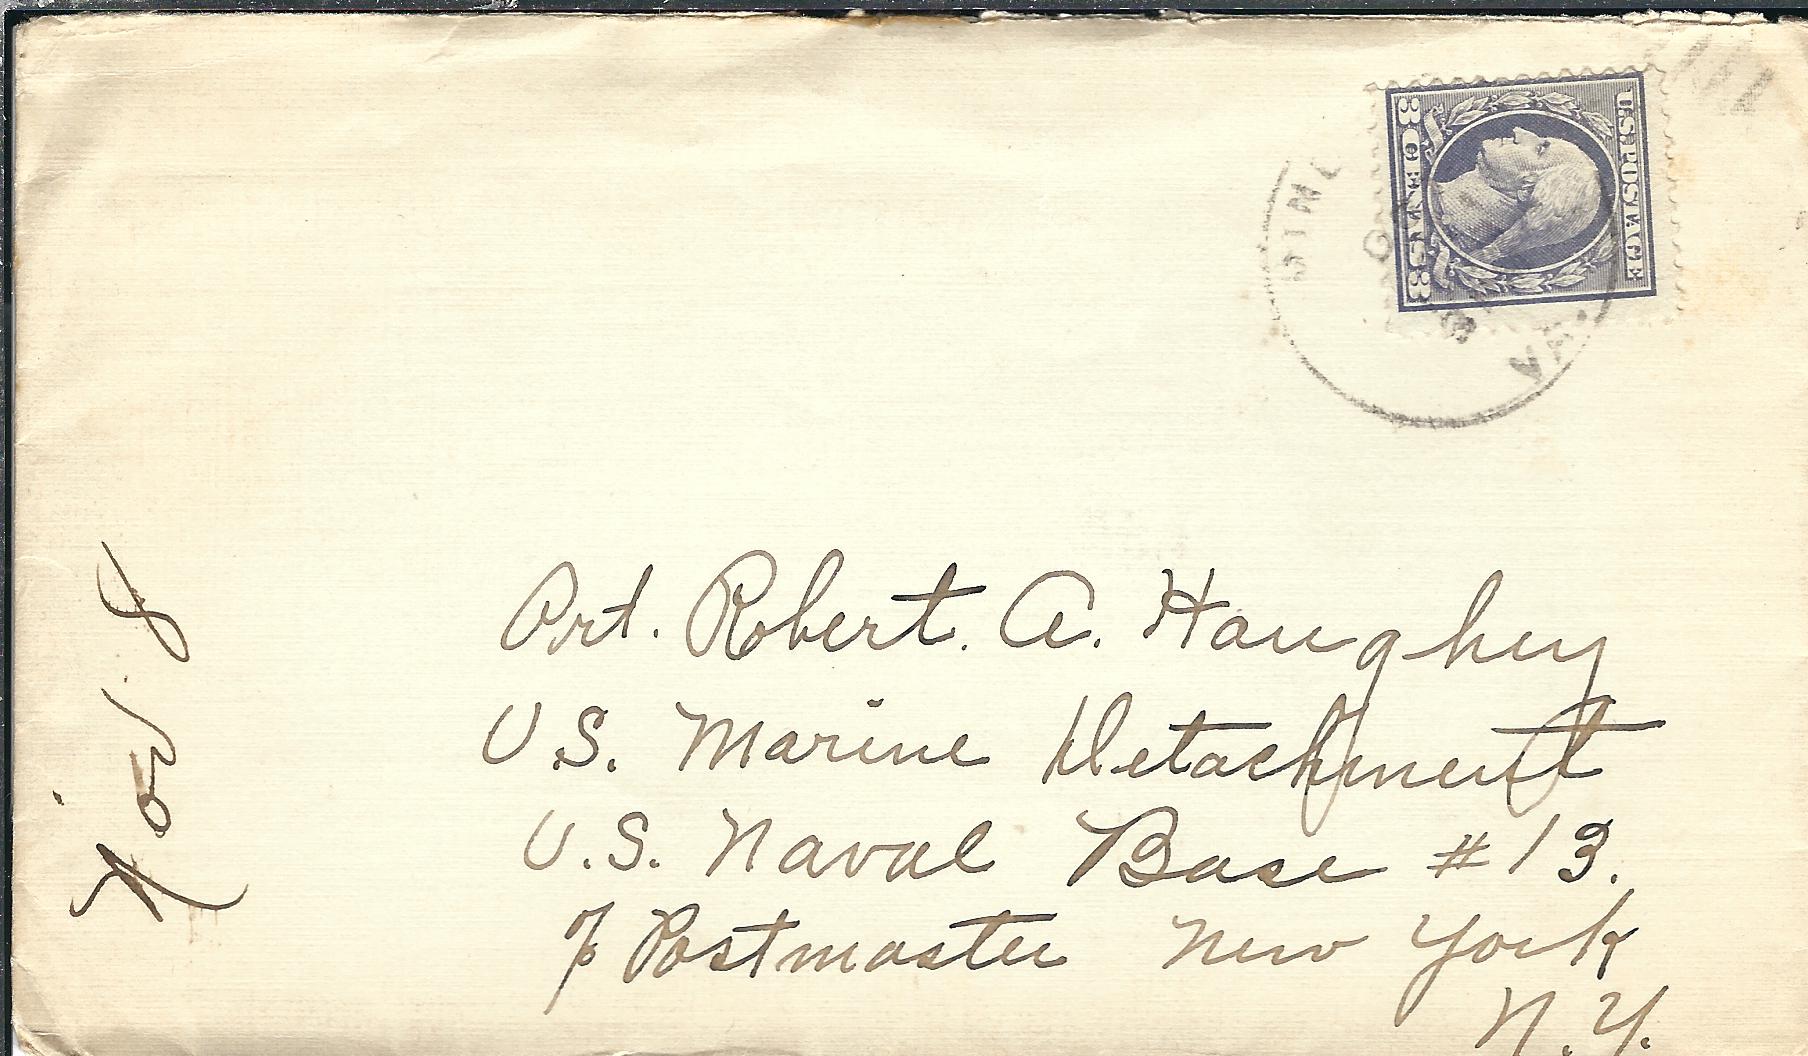 U.S. POSTAGE
3 CENTS 3
VA.
Nov 8
Pvt. Robert. A. Haughey
U.S. Marine Detachment
U.S. Naval Base #13.
% Postmaster New York
N.Y.